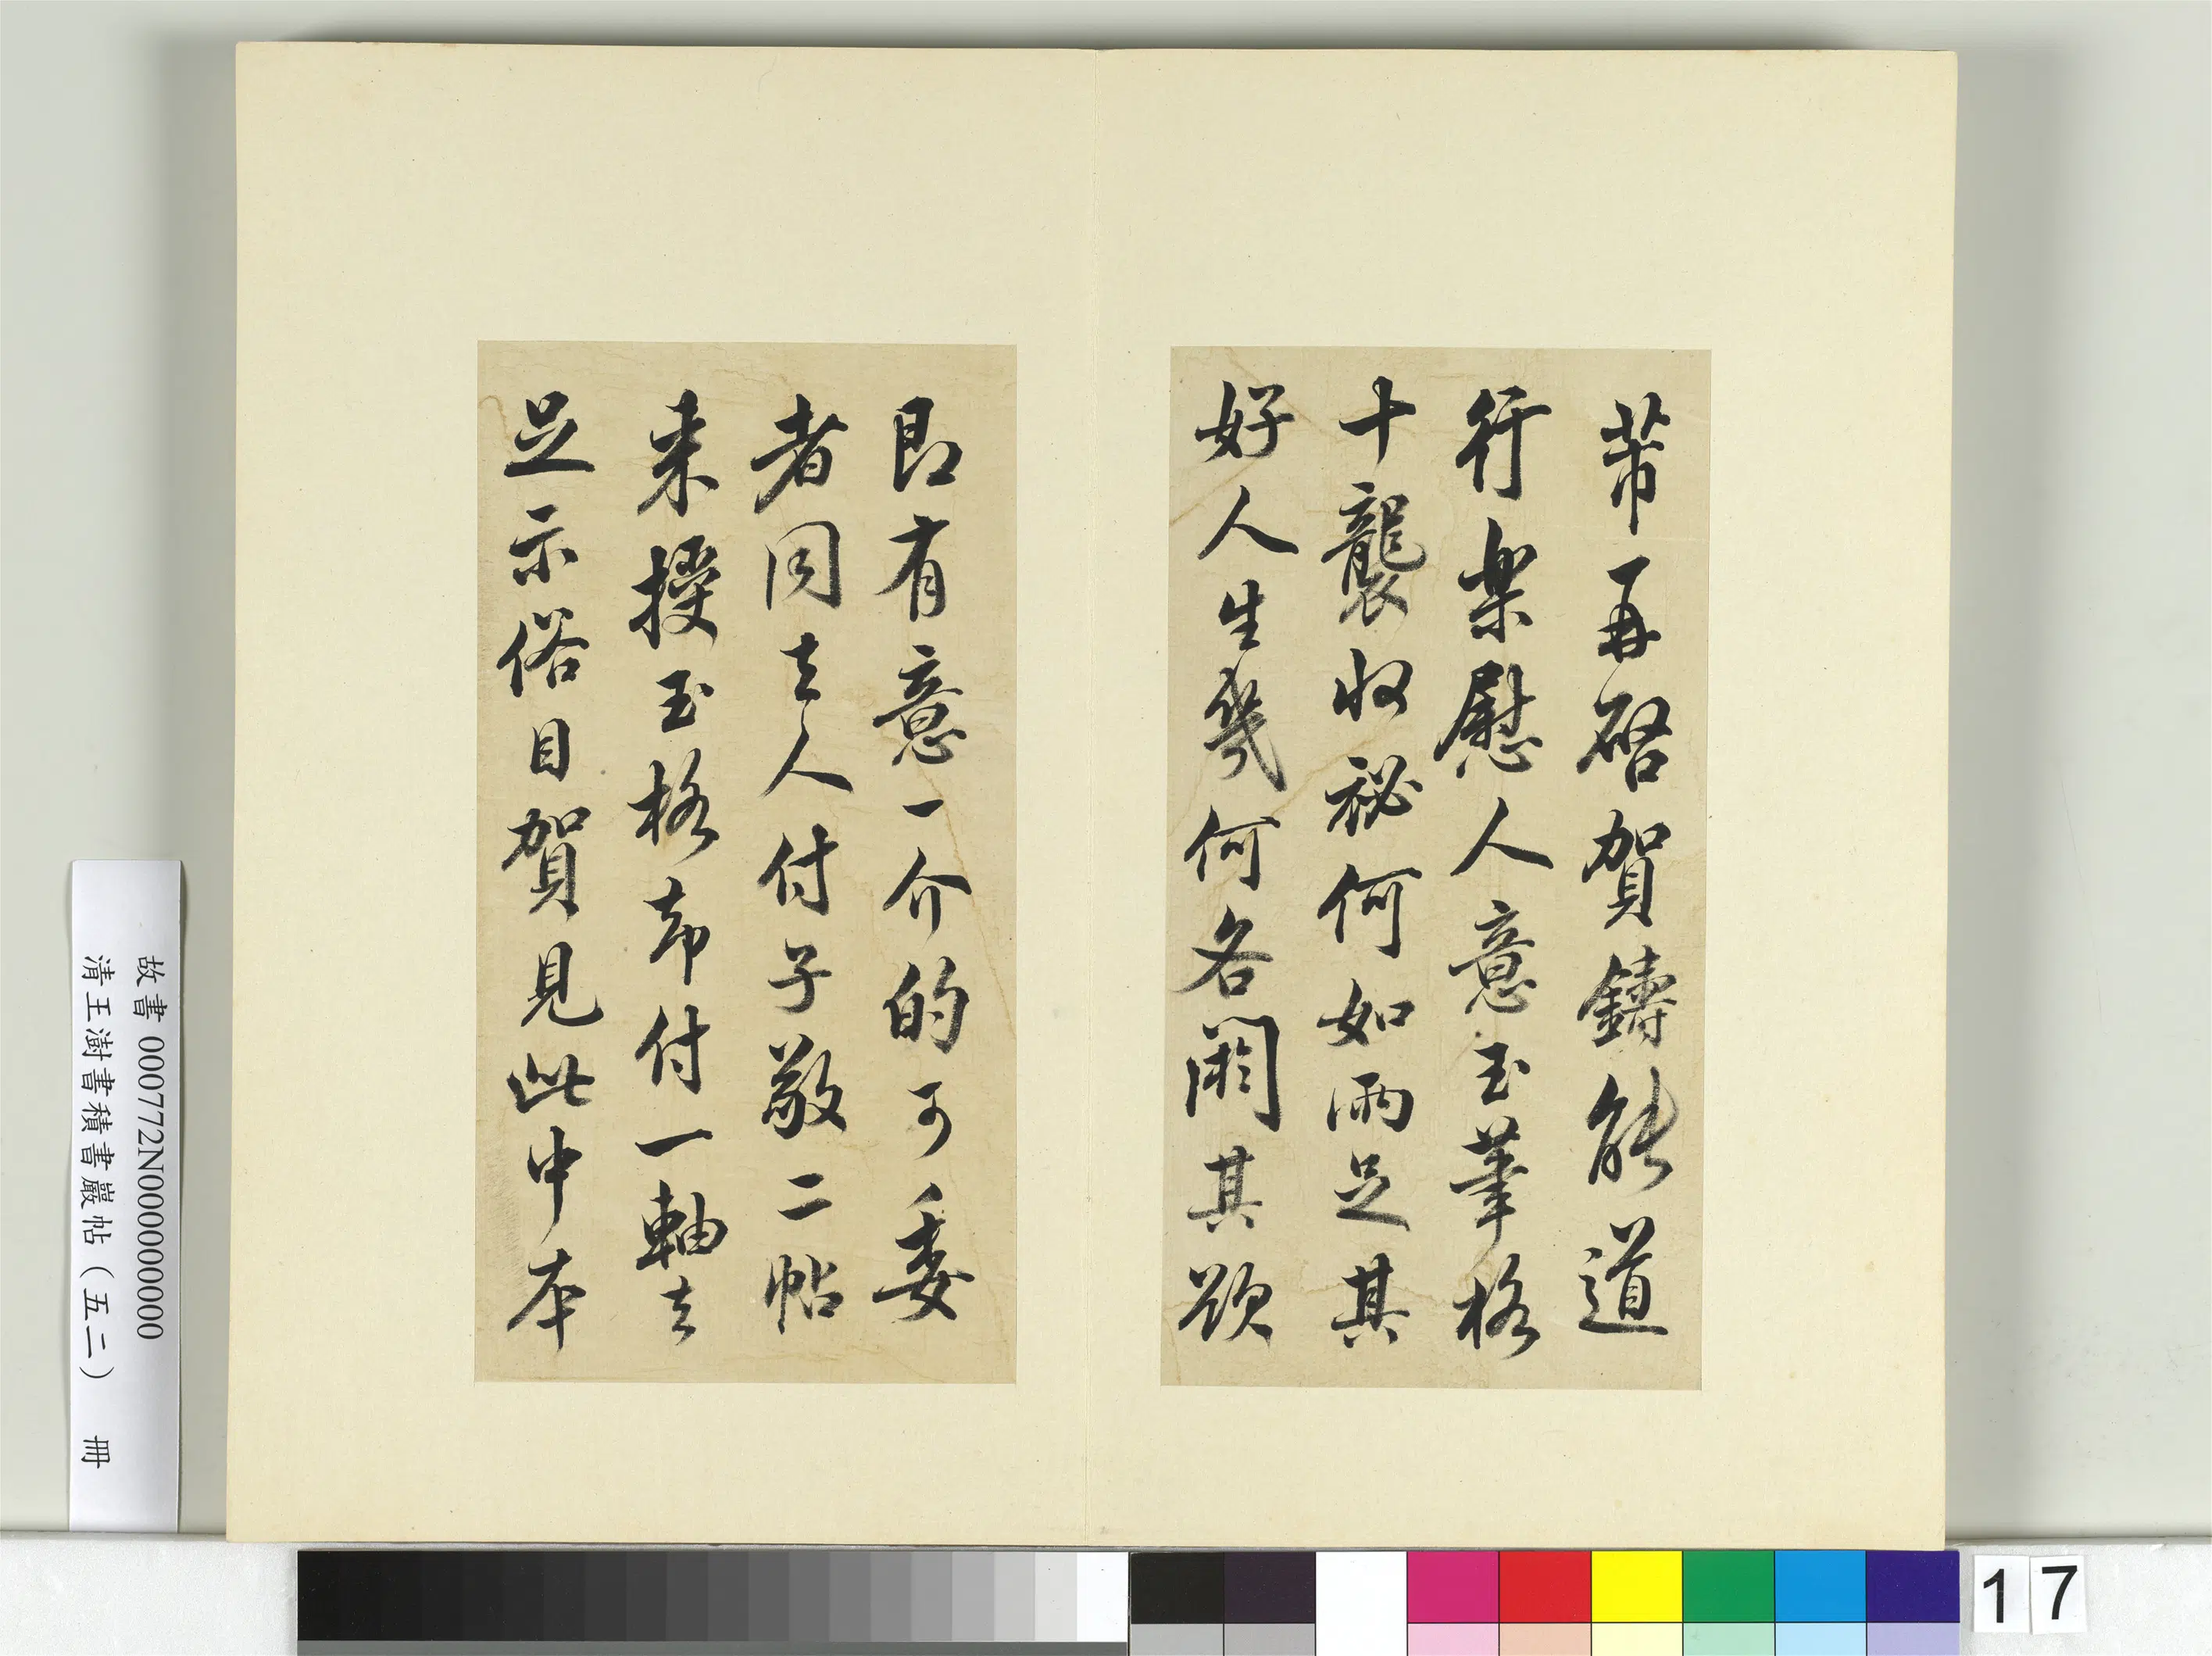 芾再啓賀鑄能道
行樂慰人意玉筆格
十襲收秘何如兩足其
好人生幾何各闕其欲
即有意一介的可委
者同去人付子敬二帖
来授玉格却付一軸去
足示俗目賀見此中本
故書 000772N000000000
清王澍書積書巖帖（五二） 冊
17